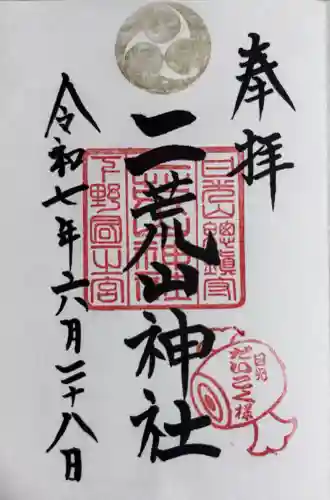 奉拝
二荒山神社
令和七年六月二十八日
日光山總鎮守
二荒山神社
下野國一宮
日光
だいこく様